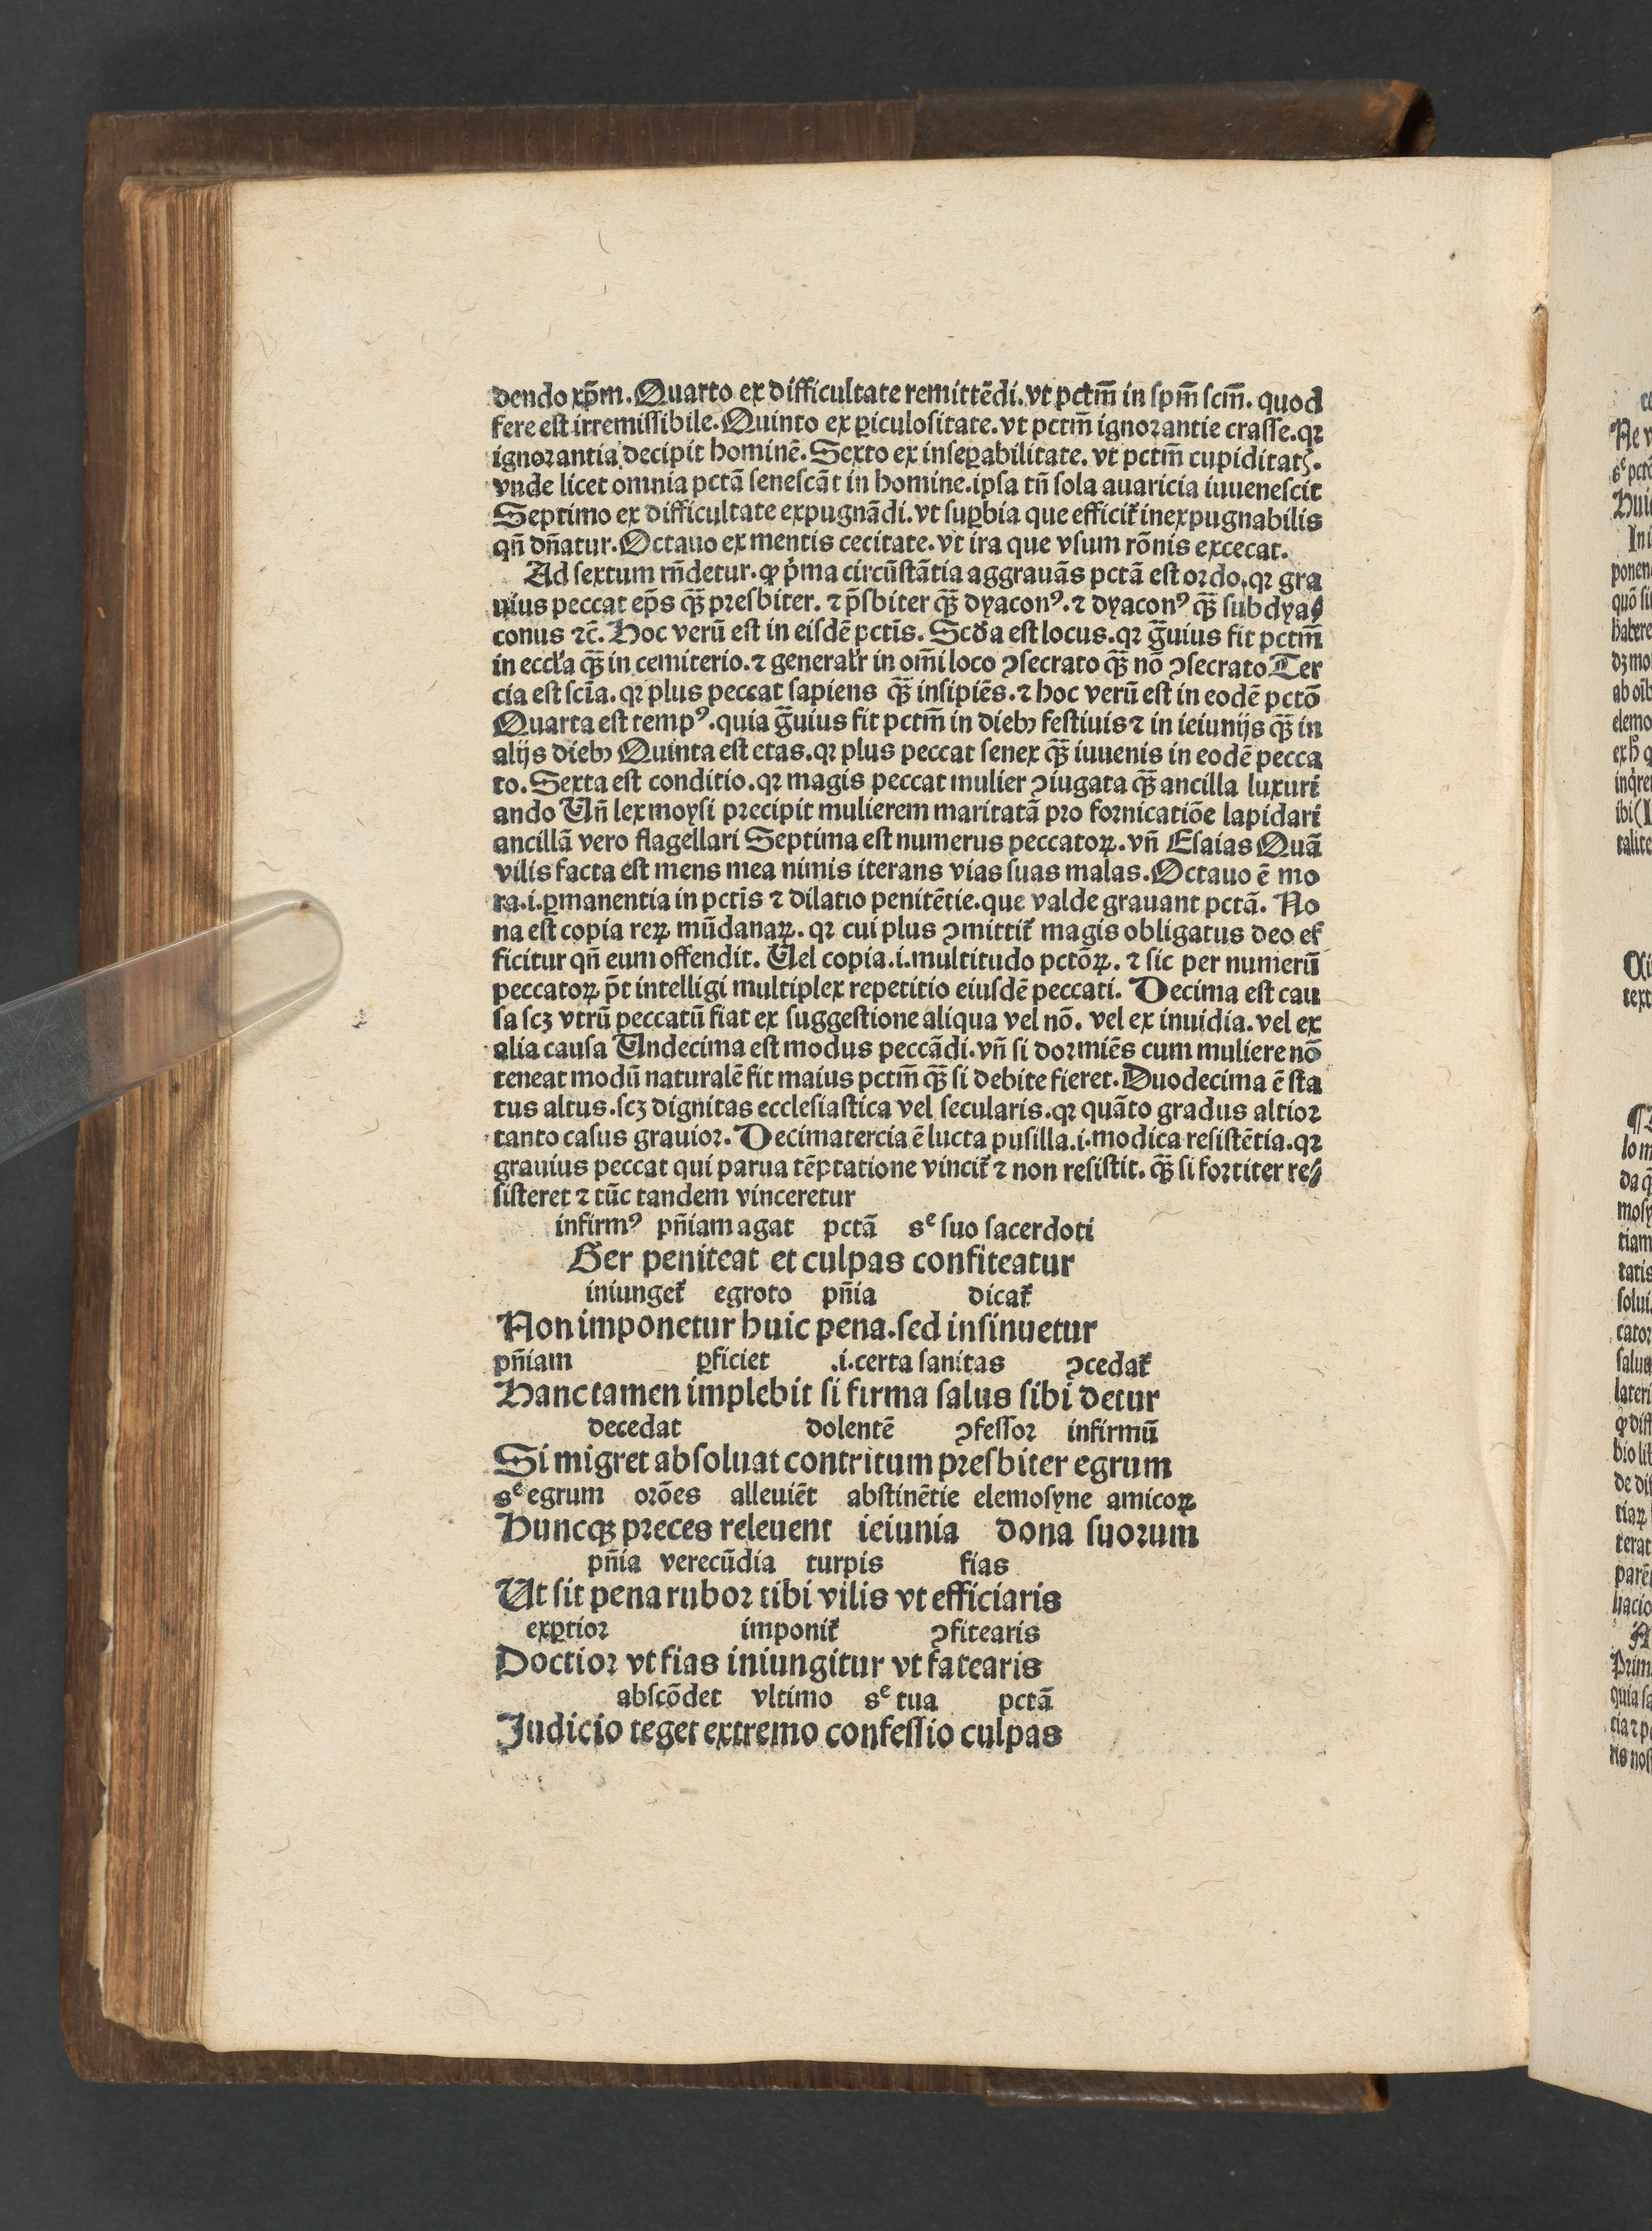 dendo xp̄m. Quarto ex difficultate remittēdi. vt pctm̄ in ſpm̄ ſcm̄. quod
fere eſt irremiſſibile. Quinto ex ꝑiculoſitate. vt pctm̄ ignorantie craſſe. qꝛ
ignorantia decipit hominē. Sexto ex inſeꝑabilitate. vt pctm̄ cupiditatꝭ.
vnde licet omnia pctā ſeneſcāt in homine. ipſa tn̄ ſola auaricia iuueneſcit
Septimo ex difficultate expugnādi. vt ſuꝑbia que efficit᷑ inexpugnabilis
qn̄ dn̄atur. Octauo ex mentis cecitate. vt ira que vſum rōnis excecat.
Ad ſextum rn̄detur. ꝙ p̓ma circūſtātia aggrauās pctā eſt ordo. qꝛ gra
uius peccat ep̄s qꝫ̄ preſbiter. ⁊ p̄ſbiter qꝫ̄ dyaconꝰ. ⁊ dyaconꝰ qꝫ̄ ſubdya⸗
conus ⁊c̄. Hoc verū eſt in eiſdē pctīs. Scďa eſt locus. qꝛ ḡuius fit pctm̄
in eccľa qꝫ̄ in cemiterio. ⁊ generaľr in om̄i loco ↄſecrato qꝫ̄ nō ↄſecrato Ter
cia eſt ſcīa. qꝛ plus peccat ſapiens qꝫ̄ inſipiēs. ⁊ hoc verū eſt in eodē pctō
Quarta eſt tempꝰ. quia ḡuius fit pctm̄ in diebꝫ feſtiuis ⁊ in ieiunijs qꝫ̄ in
alijs diebꝫ Quinta eſt etas. qꝛ plus peccat ſenex qꝫ̄ iuuenis in eodē pecca
to. Sexta eſt conditio. qꝛ magis peccat mulier ↄiugata qꝫ̄ ancilla luxuri
ando Un̄ lex moyſi precipit mulierem maritatā pro fornicatiōe lapidari
ancillā vero flagellari Septima eſt numerus peccatoꝝ. vn̄ Eſaias Quā
vilis facta eſt mens mea nimis iterans vias ſuas malas. Octauo ē mo
ra. i. ꝑmanentia in pctīs ⁊ dilatio penitētie. que valde grauant pctā. No
na eſt copia reꝝ mūdanaꝝ. qꝛ cui plus ↄmittit᷑ magis obligatus deo ef
ficitur qn̄ eum offendit. Uel copia. i. multitudo pctōꝝ. ⁊ ſic per numerū
peccatoꝝ p̄t intelligi multiplex repetitio eiuſdē peccati. Decima eſt cau
ſa ſcꝫ vtrū peccatū fiat ex ſuggeſtione aliqua vel nō. vel ex inuidia. vel ex
alia cauſa Undecima eſt modus peccādi. vn̄ ſi dormiēs cum muliere nō
teneat modū naturalē fit maius pctm̄ qꝫ̄ ſi debite fieret. Duodecima ē ſta
tus altus. ſcꝫ dignitas eccleſiaſtica vel ſecularis. qꝛ quāto gradus altior
tanto caſus grauior. Decimatercia ē lucta puſilla. i. modica reſiſtētia. qꝛ
grauius peccat qui parua tēptatione vincit᷑ ⁊ non reſiſtit. qꝫ̄ ſi fortiter re⸗
ſiſteret ⁊ tūc tandem vinceretur
infirmꝰ pn̄iam agat pctā sͤ ſuo ſacerdoti
Ger peniteat et culpas confiteatur
iniunget᷑ egroto pn̄ia dicat᷑
Non imponetur huic pena. ſed inſinuetur
pn̄iam ꝑficiet .i. certa ſanitas ↄcedat᷑
Hanc tamen implebit ſi firma ſalus ſibi detur
decedat dolentē ↄfeſſor infirmū
Si migret abſoluat contritum preſbiter egrum
sͤ egrum orōes alleuiēt abſtinētie elemoſyne amicoꝝ
Huncqꝫ preces releuent ieiunia dona ſuorum
pn̄ia verecūdia turpis fias
Ut ſit pena rubor tibi vilis vt efficiaris
exꝑtior imponit᷑ ↄfitearis
Doctior vt fias iniungitur vt fatearis
abſcōdet vltimo sͤ tua pctā
Judicio teget extremo confeſſio culpas